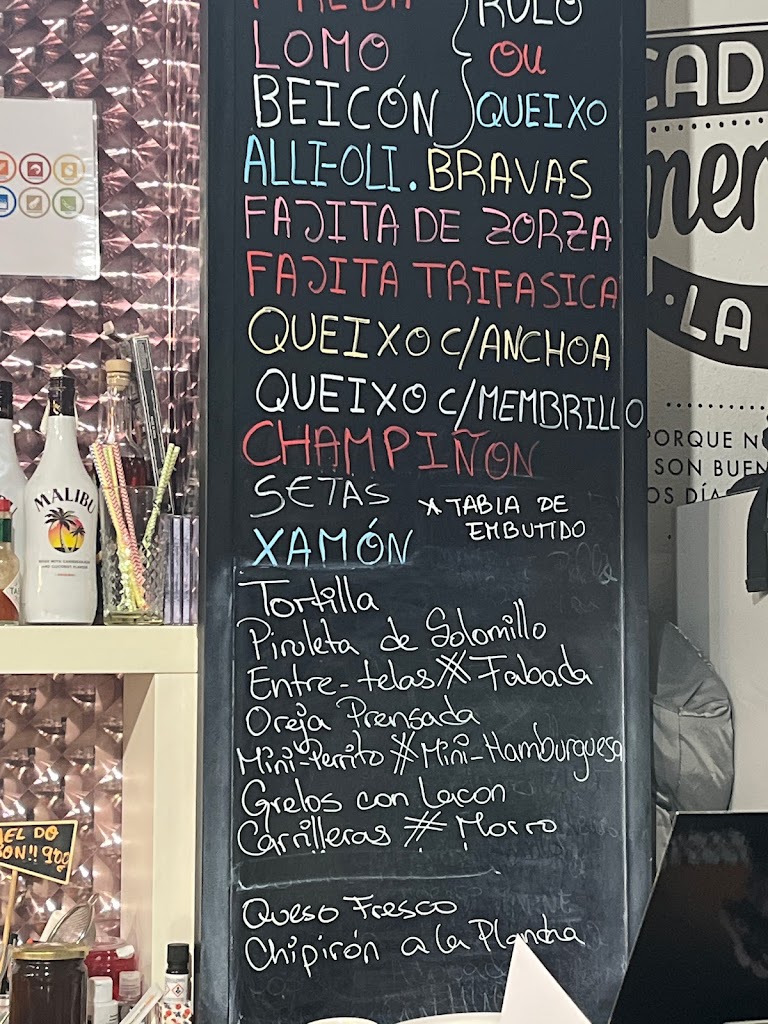 RULO
LOMO
OU
BEICÓN
QUEIXO
ALLI-OLI. BRAVAS
FAJITA DE ZORZA
FAJITA TRIFASICA
QUEIXO C/ANCHOA
QUEIXO C/MEMBRILLO
CHAMPIÑON
SETAS
* TABLA DE
EMBUTIDO
XAMÓN
Tortilla
Piruleta de Solomillo
Entre-telas # Fabada
Oreja Prensada
Mini-Perrito # Mini-Hamburguesa
Grelos con Lacon
Carrilleras # Morro
Queso Fresco
Chipirón a la Plancha
MALIBU
CAD
mer
· LA
PORQUE N
SON BUEN
OS DÍA
EL DO
ON!! 900g